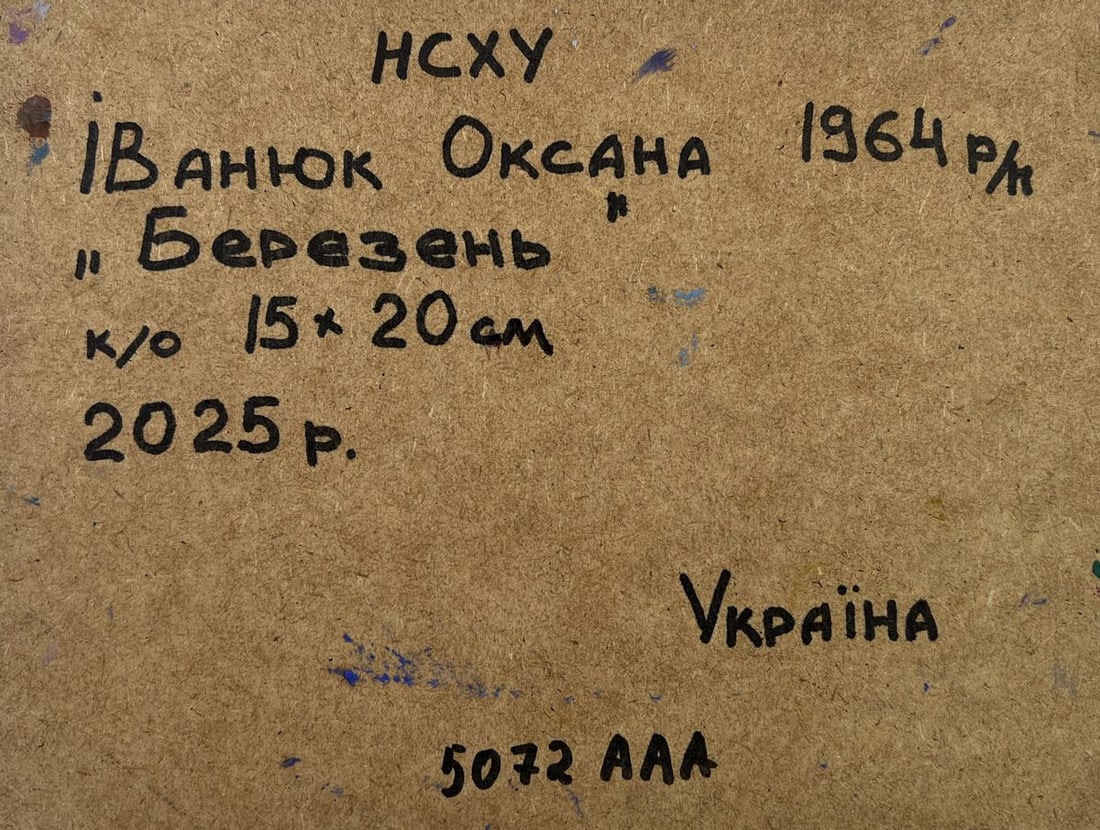 НСХУ
Іванюк Оксана 1964 р/н
„Березень"
к/о 15 × 20 см
2025 р.
Україна
5072 ААА